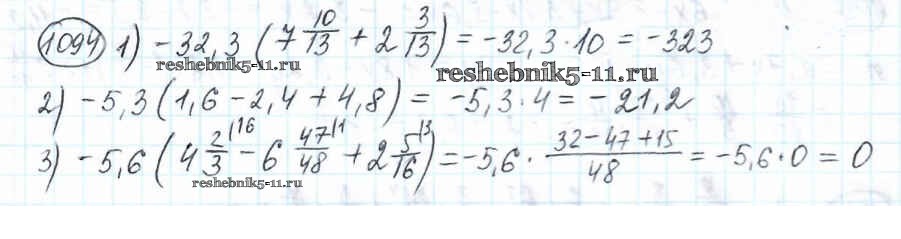 1094 1) -32,3 (7 10/13 + 2 3/13) = -32,3 · 10 = -323
reshebnik5-11.ru
reshebnik5-11.ru
2) -5,3 (1,6 - 2,4 + 4,8) = -5,3 · 4 = -21,2
3) -5,6 (4 2/3|16 - 6 47/48|1 + 2 5/16|3) = -5,6 · (32-47+15)/48 = -5,6 · 0 = 0
reshebnik5-11.ru